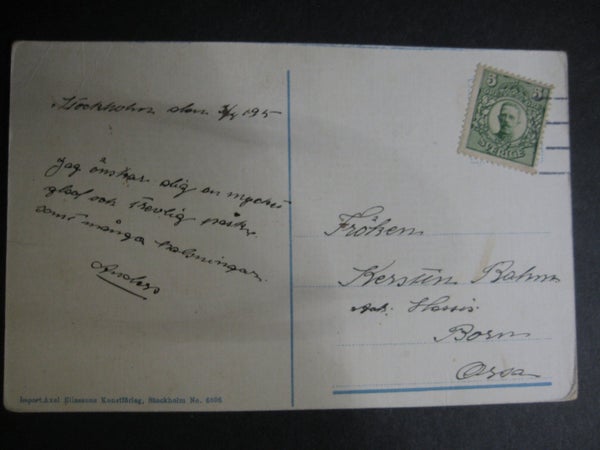 Stockholm den 3/4 195
Jag önskar dig en mycket
glad och trevlig påsk,
samt många hälsningar.
Anders
5 5
SVERIGE
Fröken
Kerstin Rahm
Born
Orsa
Import. Axel Eliassons Konstförlag, Stockholm No.